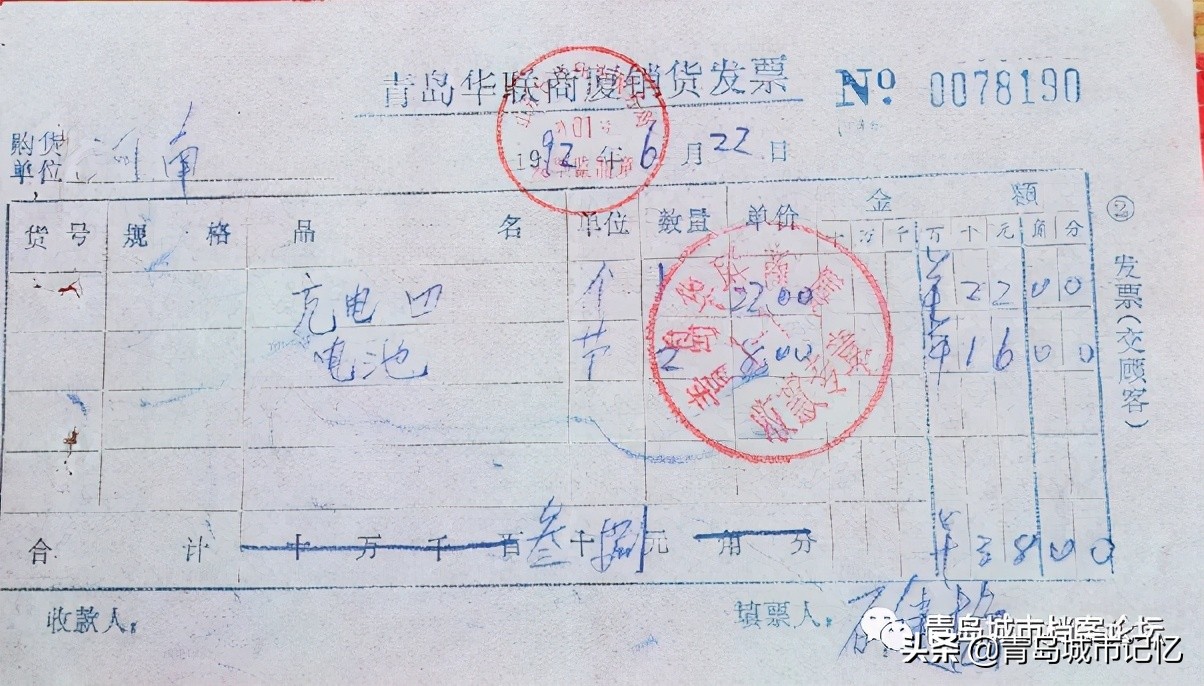 青岛华联商厦销货发票 No 0078190
1992年6月22日
购货单位 河南
货号 规格 品名 单位 数量 单价 金额
十万千百十元角分
充电凹 个 1 22 00 ¥22 00
电池 节 2 8 00 ¥16 00
合计 十万千百叁十捌元角分 ¥38 00
② 发票(交顾客)
收款人: 填票人:
青岛城市档案论坛
头条@青岛城市记忆